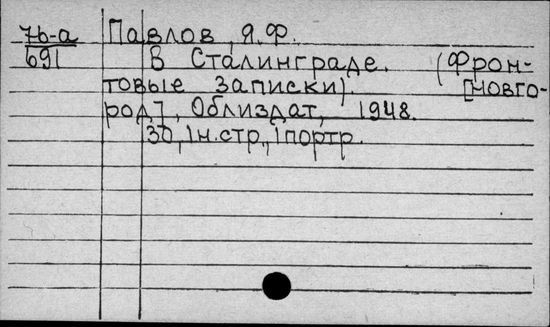 7б-а Павлов, Я.Ф.
691 В Сталинграде. (Фрон-
товые записки). [Новго-
род], Облиздат, 1948.
30, 1н.стр., 1портр.